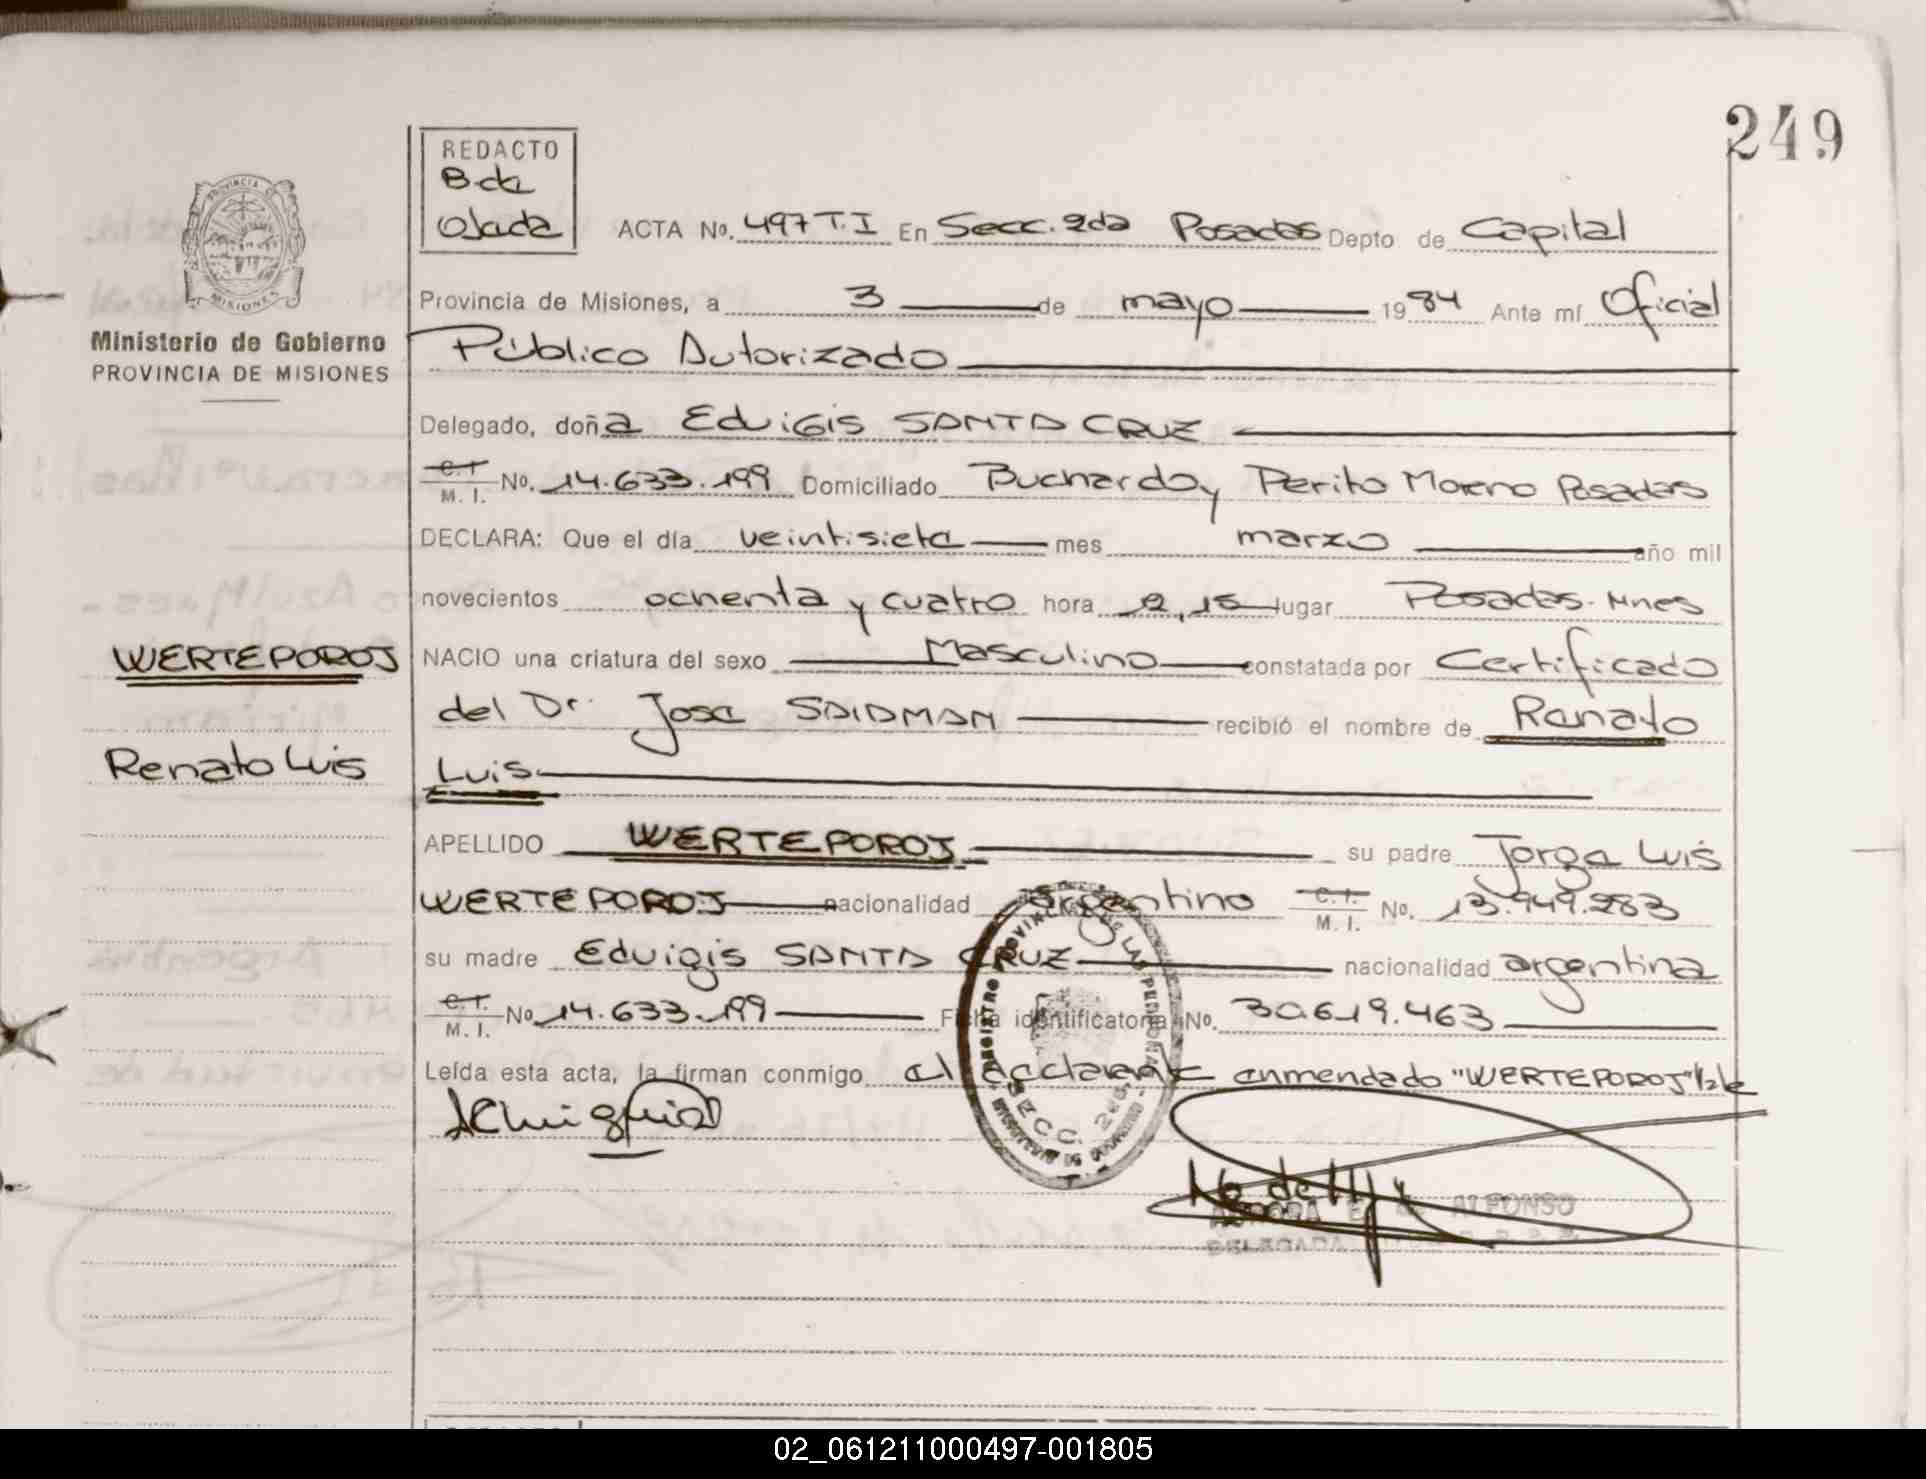 249
REDACTO
B. de
Ojeda
ACTA No. 497 T. I En Secc. 2da Posadas Depto de Capital
Provincia de Misiones, a 3 de mayo 1984 Ante mí Oficial
Público Autorizado
Ministerio de Gobierno
PROVINCIA DE MISIONES
Delegado, doña Eduigis SANTA CRUZ
C.I. M. I. No. 14.633.199 Domiciliado Buchardo y Perito Moreno Posadas
DECLARA: Que el día veintisiete mes marzo año mil
novecientos ochenta y cuatro hora 2,15 lugar Posadas-Mnes
WERTEPOROJ
NACIO una criatura del sexo Masculino constatada por Certificado
del Dr. Jose SAIDMAN recibió el nombre de Renato
Renato Luis
Luis
APELLIDO WERTEPOROJ su padre Jorge Luis
WERTEPOROJ nacionalidad argentino C.I. M. I. No. 13.949.283
su madre Eduigis SANTA CRUZ nacionalidad argentina
C.I. M. I. No 14.633.199 Ficha identificatoria No. 30.619.463
Leída esta acta, la firman conmigo el declarante enmendado "WERTEPOROJ" Vale
SECC. 2da.
ALFONSO
DELEGADA
02_061211000497-001805